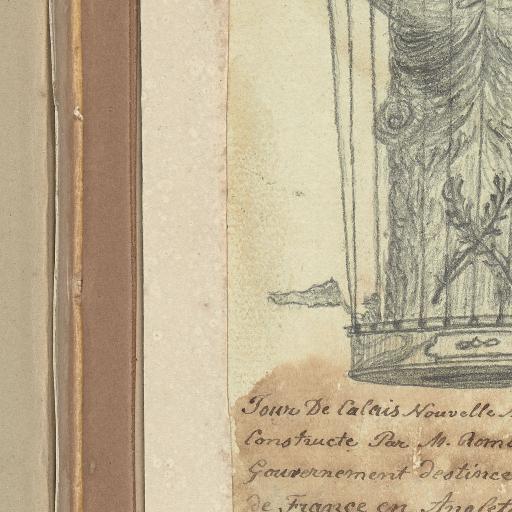 Tour De Calais Nouvelle
Constructe Par M. Rom
Gouvernement destinee
de France en Anglet